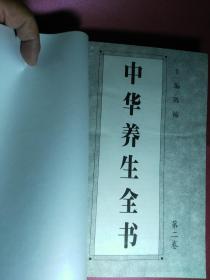 主编陈楠
中华养生全书
第二卷